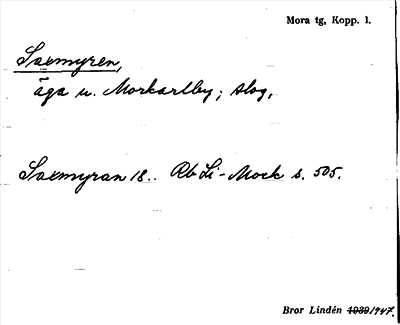 Mora tg, Kopp. l.
Saxmyren,
äga u. Morkarlby; skog,
Saxmyran 18.. Rb Li-Mock s. 505.
Bror Lindén 1939/1947.